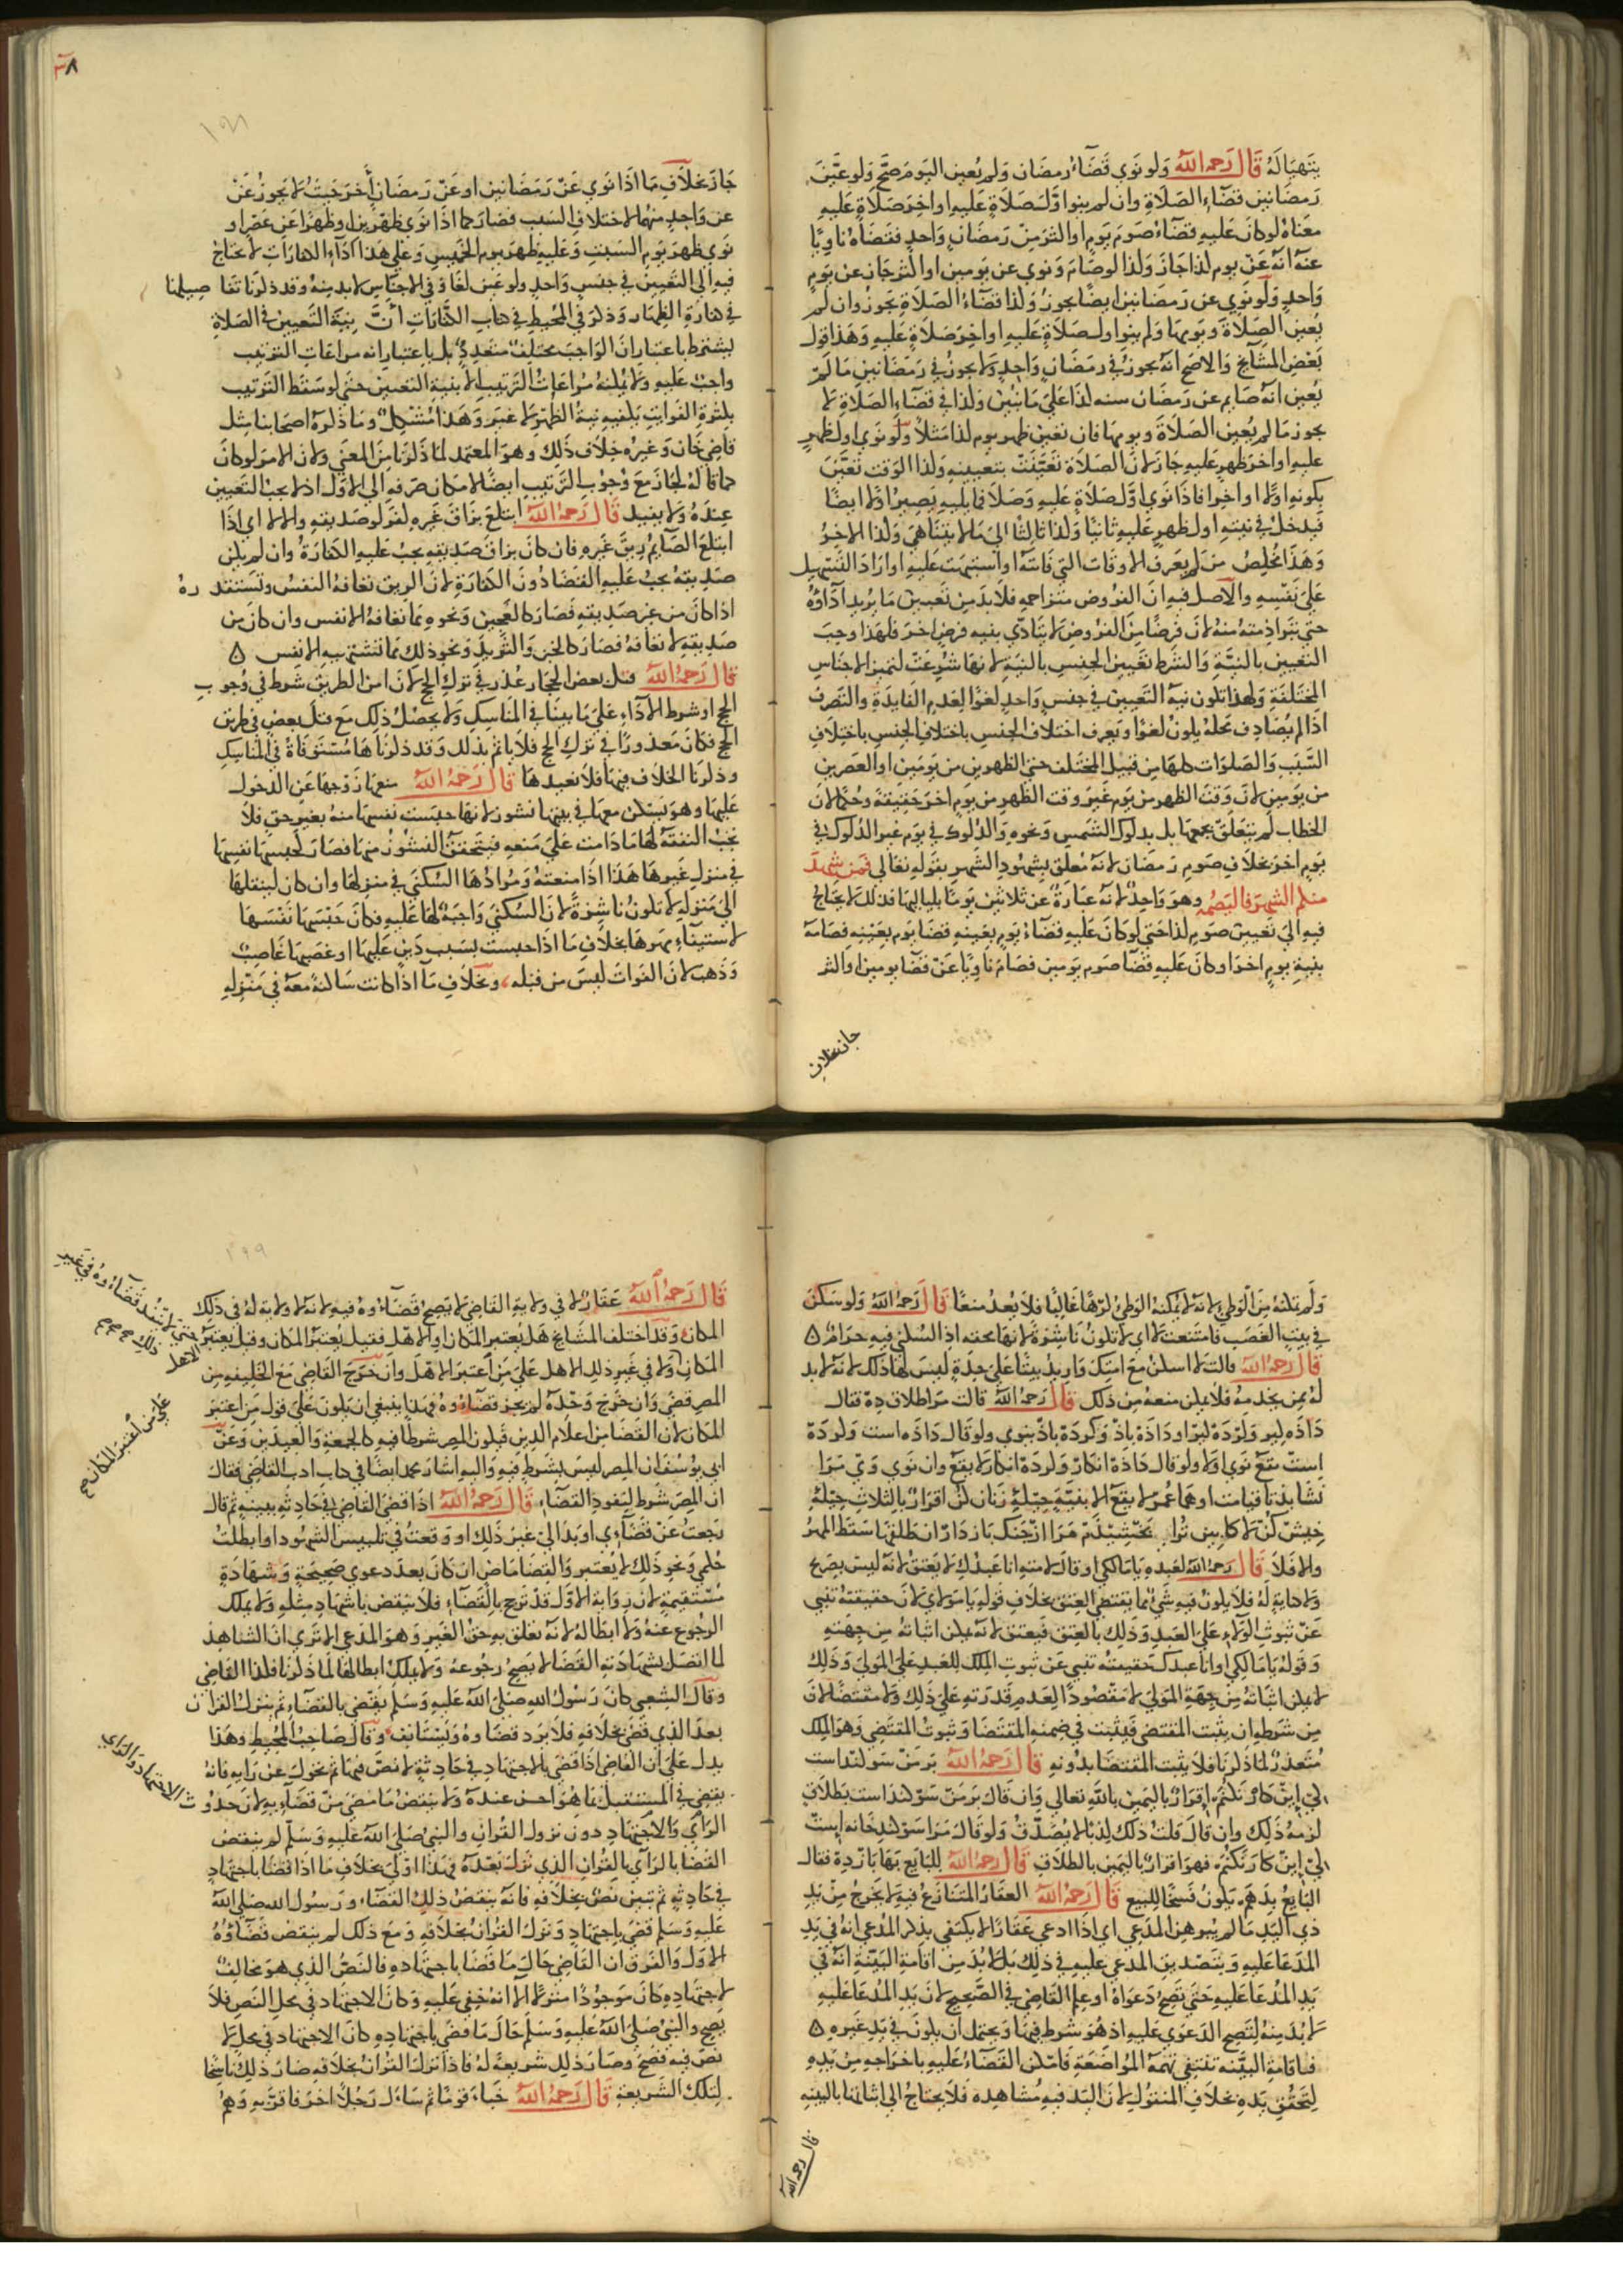 يتهيا له قَالَ رَحمهُ اللهُ ولو نوي قضاء رمضان ولم يعين اليوم صح ولو عن
رمضانين قضاء الصلاة وان لم ينوا اول صلاة عليه او اخر صلاة عليه
معناه لو كان عليه قضاء صوم يوم او اكثر من رمضان واحد فقضاه ناويا
عنه انه عن يوم كذا جاز وكذا لو صام ونوي عن يومين او اكثر جاز عن يوم
واحد ولو نوي عن رمضانين ايضا يجوز وكذا قضاء الصلاة يجوز وان لم
يعين الصلاة ويومها ولم ينوا اول صلاة عليه او اخر صلاة عليه وهذا قول
بعض المشايخ والاصح انه يجوز في رمضان واحد ولا يجوز في رمضانين ما لم
يعين انه صايم عن رمضان سنه كذا علي ما نبين وكذا في قضاء الصلاة لا
يجوز ما لم يعين الصلاة ويومها فان تعين ظهر يوم كذا مثلا ولو نوي اول ظهر
عليه او اخر ظهر عليه جاز لان الصلاة تعينت بتعيينه وكذا الوقت تعين
بكونه اولا او اخرا فاذا نوي اول صلاة عليه وصلا فما يليه يصير اولا ايضا
فيدخل في نيته اول ظهر عليه ثانيا وكذا ثالثا الي ما لا يتناهي وكذا الاخر
وهذا مخلص من لم يعرف الاوقات التي فاتته او اشتبهت عليه او اراد التسهيل
علي نفسه والاصل فيه ان الفروض متزاحمه فلا بد من تعيين ما يريد اداؤه
حتي تبرا ذمته منه لان فرضا من الفروض لا يتادي بنيه فرض اخر فلهذا وجب
التعيين بالنية والشرط تعيين الجنس بالنية لانها شرعت لتمييز الاجناس
المختلفة ولهذا تكون نية التعيين في جنس واحد لغوا لعدم الفايدة والتصرف
اذا لم يصادف محله يكون لغوا ويعرف اختلاف الجنس باختلاف الجنس باختلاف
السبب والصلوات كلها من قبيل المختلف حتي الظهرين من يومين او العصرين
من يومين لان وقت الظهر من يوم غير وقت الظهر من يوم اخر حقيقة وحكما لان
الخطاب لم يتعلق بجمعها بل بدلوك الشمس ونحوه والدلوك في يوم غير الدلوك في
يوم اخر بخلاف صوم رمضان لانه معلق بشهود الشهر بقوله تعالي فمن شهد
منكم الشهر فليصمه وهو واحد لانه عبارة عن ثلاثين يوما بلياليها فلذلك لا يحتاج
فيه الي تعيين صوم كذا حتي لو كان عليه قضاء يوم بعينه فصامه
بنية يوم اخر او كان عليه قضا صوم يومين فصام ناويا عن قضا يومين او اكثر
جاز بخلاف
٣٨
جاز بخلاف ما اذا نوي عن رمضانين او عن رمضان اخر حيث لا يجوز عن
عن واحد منهما لاختلاف السبب فصار كما اذا نوي ظهرين او ظهرا عن عصر او
نوي ظهر يوم السبت وعليه ظهر يوم الخميس وعلي هذا اداء الكفارات لا يحتاج
فيه الي التعيين في جنس واحد ولو عين لغا وفي الاجناس لابد منه وقد ذكرنا تفاصيلها
في كفارة الظهار وذكر في المحيط في كتاب الكفارات ان نية التعيين في الصلاة
يشترط باعتبار ان الواجب مختلف متعدد بل باعتبار انه مراعات الترتيب
واجب عليه ولا يمكنه مراعات الترتيب الا بنية التعيين حتي لو سقط الترتيب
بكثرة الفوايت يكفيه نية الظهر لا غير وهذا مشكل وما ذكره اصحابنا مثل
قاضي خان وغيره خلاف ذلك وهو المعتمد لما ذكرنا من المعني ولان الامر لو كان
كما قاله لجاز مع وجوب الترتيب ايضا لامكان صرفه الي الاول اذ لا يجب التعيين
عنده ولا يفيد قَالَ رَحمهُ اللهُ ابتلع بزاق غيره كفر لو صديقه والا لا اي اذا
ابتلع الصايم ريق غيره فان كان بزاق صديقه يجب عليه الكفارة وان لم يكن
صديقه يجب عليه القضا دون الكفارة لان الريق تعافه النفس وتستقذره
اذا كان من غير صديقه فصار كالعجين ونحوه مما تعافه الانفس وان كان من
صديقه لا تعافه فصار كالخبز والثريد ونحو ذلك مما تشتهيه الانفس ٥
قال رَحمهُ اللهُ قتل بعض الحجاج عذر في ترك الحج لان امن الطريق شرط في وجوب
الحج او شرط الاداء علي ما بينا في المناسك ولا يحصل ذلك مع قتل بعض في طريق
الحج فكان معذورا في ترك الحج فلا ياثم بذلك وقد ذكرناها مستوفاة في المناسك
وذكرنا الخلاف فيها فلا نعيدها قال رَحمهُ اللهُ منعها زوجها عن الدخول
عليها وهو يسكن معها في بيتها نشوز لانها حبست نفسها منه بغير حق فلا
تجب النفقة لها ما دامت علي منعه فيتحقق النشوز منها فصار كحبسها نفسها
في منزل غيرها هذا اذا منعته ومرادها السكني في منزلها وان كان لينقلها
الي منزله لا تكون ناشزة لان السكني واجبة لها عليه فكان حبسها نفسها
لاستيفاء مهرها بخلاف ما اذا حبست بسبب دين عليها او غصبها غاصب
وذهب لان الفوات ليس من قبله وبخلاف ما اذا كانت ساكنة معه في منزله
ولم تمكنه من الوطي لانه لا يمكنه الوطي كرها غالبا فلا يعد منعا قَالَ رَحمهُ اللهُ ولو سكن
في بيت الغصب فامتنعت لا اي لا تكون ناشزة لانها محقه اذ السكني فيه حرام ٥
قال رَحمهُ اللهُ قالت لا اسكن مع امتك واريد بيتا علي حدة ليس لها ذلك لانه لا بد
له ممن يخدمه فلا يمكن منعه من ذلك قَالَ رَحمهُ اللهُ قالت مرا طلاق ده فقال
داده كير وكرده كير او داده باذ وكرده باذ ينوي ولو قال داده است وكرده
است يقع نوي او لا ولو قال داده انكار وكرده انكار لا يقع وان نوي وي مرا
نشايد تا قيامت او همه عمر لا يقع الا بنية حيله زنان كن اقرار بالثلاث حيله
خيش كن لا كابين ترا بخشيدم مرا از جنك باز دار ان طلقها سقط المهر
والا فلا قَالَ رحمهُ اللهُ لعبده يا مالكي او قال لامته انا عبدك لا يعتق لانه ليس بصريح
ولا كناية له فلا يكون فيه شي مما يقتضي العتق بخلاف قوله يا مولاي لان حقيقته تنبي
عن ثبوت الولاء علي العبد وذلك بالعتق فيعتق لانه يمكن اثباته من جهته
وقوله يا مالكي او انا عبدك حقيقته تنبي عن ثبوت الملك للعبد علي المولي وذلك
لا يمكن اثباته من جهة المولي لا مقصودا لعدم قدرته علي ذلك ولا مقتضا لان
من شرطه ان يثبت المقتضي فيثبت في ضمنه المقتضا وثبوت المقتضي وهو الملك
متعذر لما ذكرنا فلا يثبت المقتضا بدونه قَال رَحمهُ اللهُ بر من سوكند است
كي اين كار نكنم اقرار باليمين بالله تعالي وان قال بر من سوكند است بطلاق
لزمه ذلك وان قال قلت ذلك كذبا لا يصدق ولو قال مرا سوكند خانه است
كي اين كار نكنم فهو اقرار باليمين بالطلاق قَالَ رحمهُ اللهُ للبايع بها باز ده فقال
البايع بدهم يكون فسخا للبيع قَالَ رَحمهُ اللهُ العقار المتنازع فيه لا يخرج من يد
ذي اليد ما لم يبرهن المدعي اي اذا ادعي عقارا لا يكتفي بذكر المدعي انه في يد
المدعا عليه وبتصديق المدعي عليه في ذلك بل لا بد من اقامة البينة انه في
يد المدعا عليه حتي تصح دعواه او علم القاضي في الصحيح لان يد المدعا عليه
لا بد منه لتصح الدعوي عليه اذ هو شرط فيها ويحتمل ان يكون في يد غيره ٥
فباقامة البينه تنتفي تهمة المواضعة فامكن القضاء عليه باخراجه من يده
لتحقق يده بخلاف المنقول لان اليد فيه مشاهده فلا يحتاج الي اثباتها بالبينه
قال رحمه الله
١٩٩
قَالَ رَحمهُ اللهُ عقار لا في ولاية القاضي لا يصح قضاءوه فيه لانه لا ولاية له في ذلك
المكان وقد اختلف المشايخ هل يعتبر المكان او الاهل فقيل يعتبر المكان وقيل يعتبر الاهل
حتي لا ينفذ قضاءوه في غير
ذلك
المكان ولا في غير ذلك الاهل علي من اعتبر الاهل وان خرج القاضي مع الخليفه من
المصر قضي وان خرج وحده لم يجز قضاءوه فهذا ينبغي ان يكون علي قول من اعتبر
المكان لان القضا من اعلام الدين فيكون المصر شرطا فيه كالجمعة والعيدين وعن
علي من اعتبر المكان صح
ابي يوسف ان المصر ليس بشرط فيه واليه اشار محمد ايضا في كتاب ادب القاضي فقال
ان المصر شرط لنفوذ القضاء قَالَ رَحمهُ اللهُ اذا قضي القاضي في حادثه ببينه ثم قال
رجعت عن قضاءي او بدا لي غير ذلك او وقعت في تلبيس الشهود او ابطلت
حكمي ونحو ذلك لا يعتبر والقضا ماض ان كان بعد دعوي صحيحة وشهادة
مستقيمة لان روايه الاول قد ترجح بالقضاء فلا ينقض باشهاد مثله ولا يملك
الرجوع عنه ولا ابطاله لانه تعلق به حق الغير وهو المدعي الا تري ان الشاهد
لما اتصل بشهادته القضا لا يصح رجوعه ولا يملك ابطالها لما ذكرنا فكذا القاضي
وقال الشعبي كان رسول الله صلي الله عليه وسلم يقضي بالقضاء ثم ينزل القران
بعد الذي قضي بخلافه فلا يرد قضاوه ويستانف وقال صاحب المحيط وهذا
يدل علي ان القاضي اذا قضي بالاجتهاد في حادثة لا نص فيها ثم تحول عن رايه فانه
يقضي في المستقبل بما هو احسن عنده ولا ينقض ما مضي من قضاءيه لان حدوث الاجتهاد والراي
الراي والاجتهاد دون نزول القران والنبي صلي الله عليه وسلم لم ينقض
القضا بالراي بالقران الذي نزل بعده فهذا اولي بخلاف ما اذا قضا باجتهاد
في حادثه ثم تبين نص بخلافه فانه ينقض ذلك القضاء ورسول الله صلي الله
عليه وسلم قضي باجتهاد ونزل القران بخلافه ومع ذلك لم ينقض قضاؤه
الاول والفرق ان القاضي حال ما قضا باجتهاده فالنص الذي هو مخالف
لاجتهاده كان موجودا منزلا الا انه خفي عليه وكان الاجتهاد في محل النص فلا
يصح والنبي صلي الله عليه وسلم حال ما قضي باجتهاده كان الاجتهاد في محل لا
نص فيه فصح وصار ذلك شريعة له فاذا نزل القران بخلافه صار ذلك ناسخا
لتلك الشريعة قَالَ رَحمهُ اللهُ خباء قوما ثم ساءل رجلا اخر فاقر به وهم